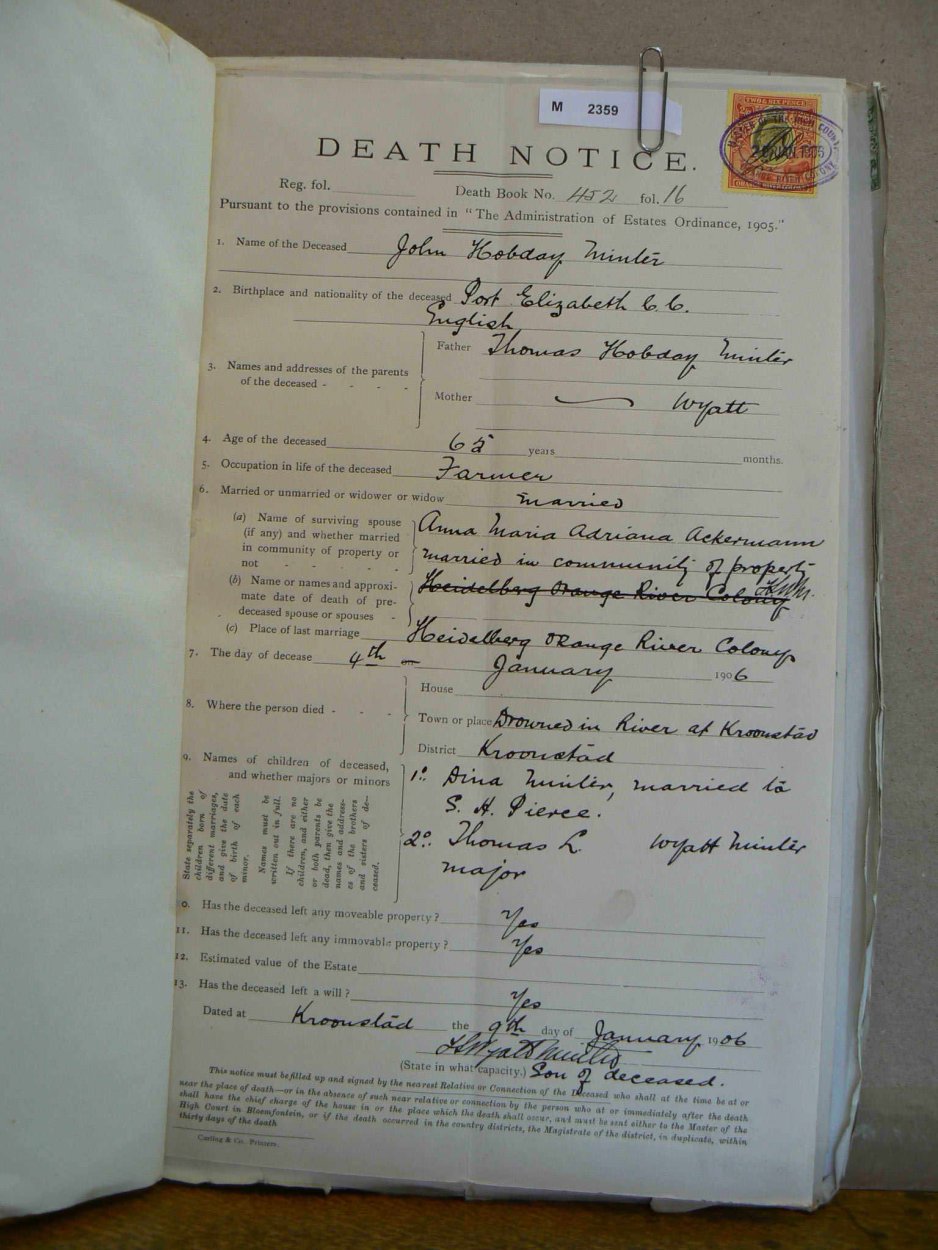 M 2359
TWO & SIX PENCE
MASTER OF THE HIGH COURT
ORANGE RIVER COLONY
DEATH NOTICE.
Reg. fol. Death Book No. 452 fol. 16
Pursuant to the provisions contained in "The Administration of Estates Ordinance, 1905."
1. Name of the Deceased John Hobday Minter
2. Birthplace and nationality of the deceased Port Elizabeth C.C.
English
Father Thomas Hobday Minter
3. Names and addresses of the parents
of the deceased - - - -
Mother Wyatt
4. Age of the deceased 65 years months.
5. Occupation in life of the deceased Farmer
6. Married or unmarried or widower or widow married
(a) Name of surviving spouse Anna Maria Adriana Ackermann
(if any) and whether married
in community of property or married in community of property
not - - - - -
(b) Name or names and approxi- Heidelberg Orange River Colony
mate date of death of pre-
deceased spouse or spouses -
(c) Place of last marriage Heidelberg Orange River Colony
7. The day of decease 4th January 1906
House
8. Where the person died - - - Town or place Drowned in River at Kroonstad
District Kroonstad
9. Names of children of deceased,
and whether majors or minors
1º. Dina Minter, married to
S. H. Pierce.
2º. Thomas L. Wyatt Minter
major
State separately the
children born of
different marriages,
and give the date
of birth of each
minor.
Names must be
written out in full.
If there are no
children, and either
or both parents be
dead, then give the
names and address-
es of the brothers
and sisters of de-
ceased.
0. Has the deceased left any moveable property? Yes
11. Has the deceased left any immovable property? Yes
12. Estimated value of the Estate
13. Has the deceased left a will? Yes
Dated at Kroonstad the 9th day of January 1906
Wyatt Minter
(State in what capacity.) Son of deceased.
This notice must be filled up and signed by the nearest Relative or Connection of the Deceased who shall at the time be at or
near the place of death—or in the absence of such near relative or connection by the person who at or immediately after the death
shall have the chief charge of the house in or the place which the death shall occur, and must be sent either to the Master of the
High Court in Bloemfontein, or if the death occurred in the country districts, the Magistrate of the district, in duplicate, within
thirty days of the death
Curling & Co. Printers.